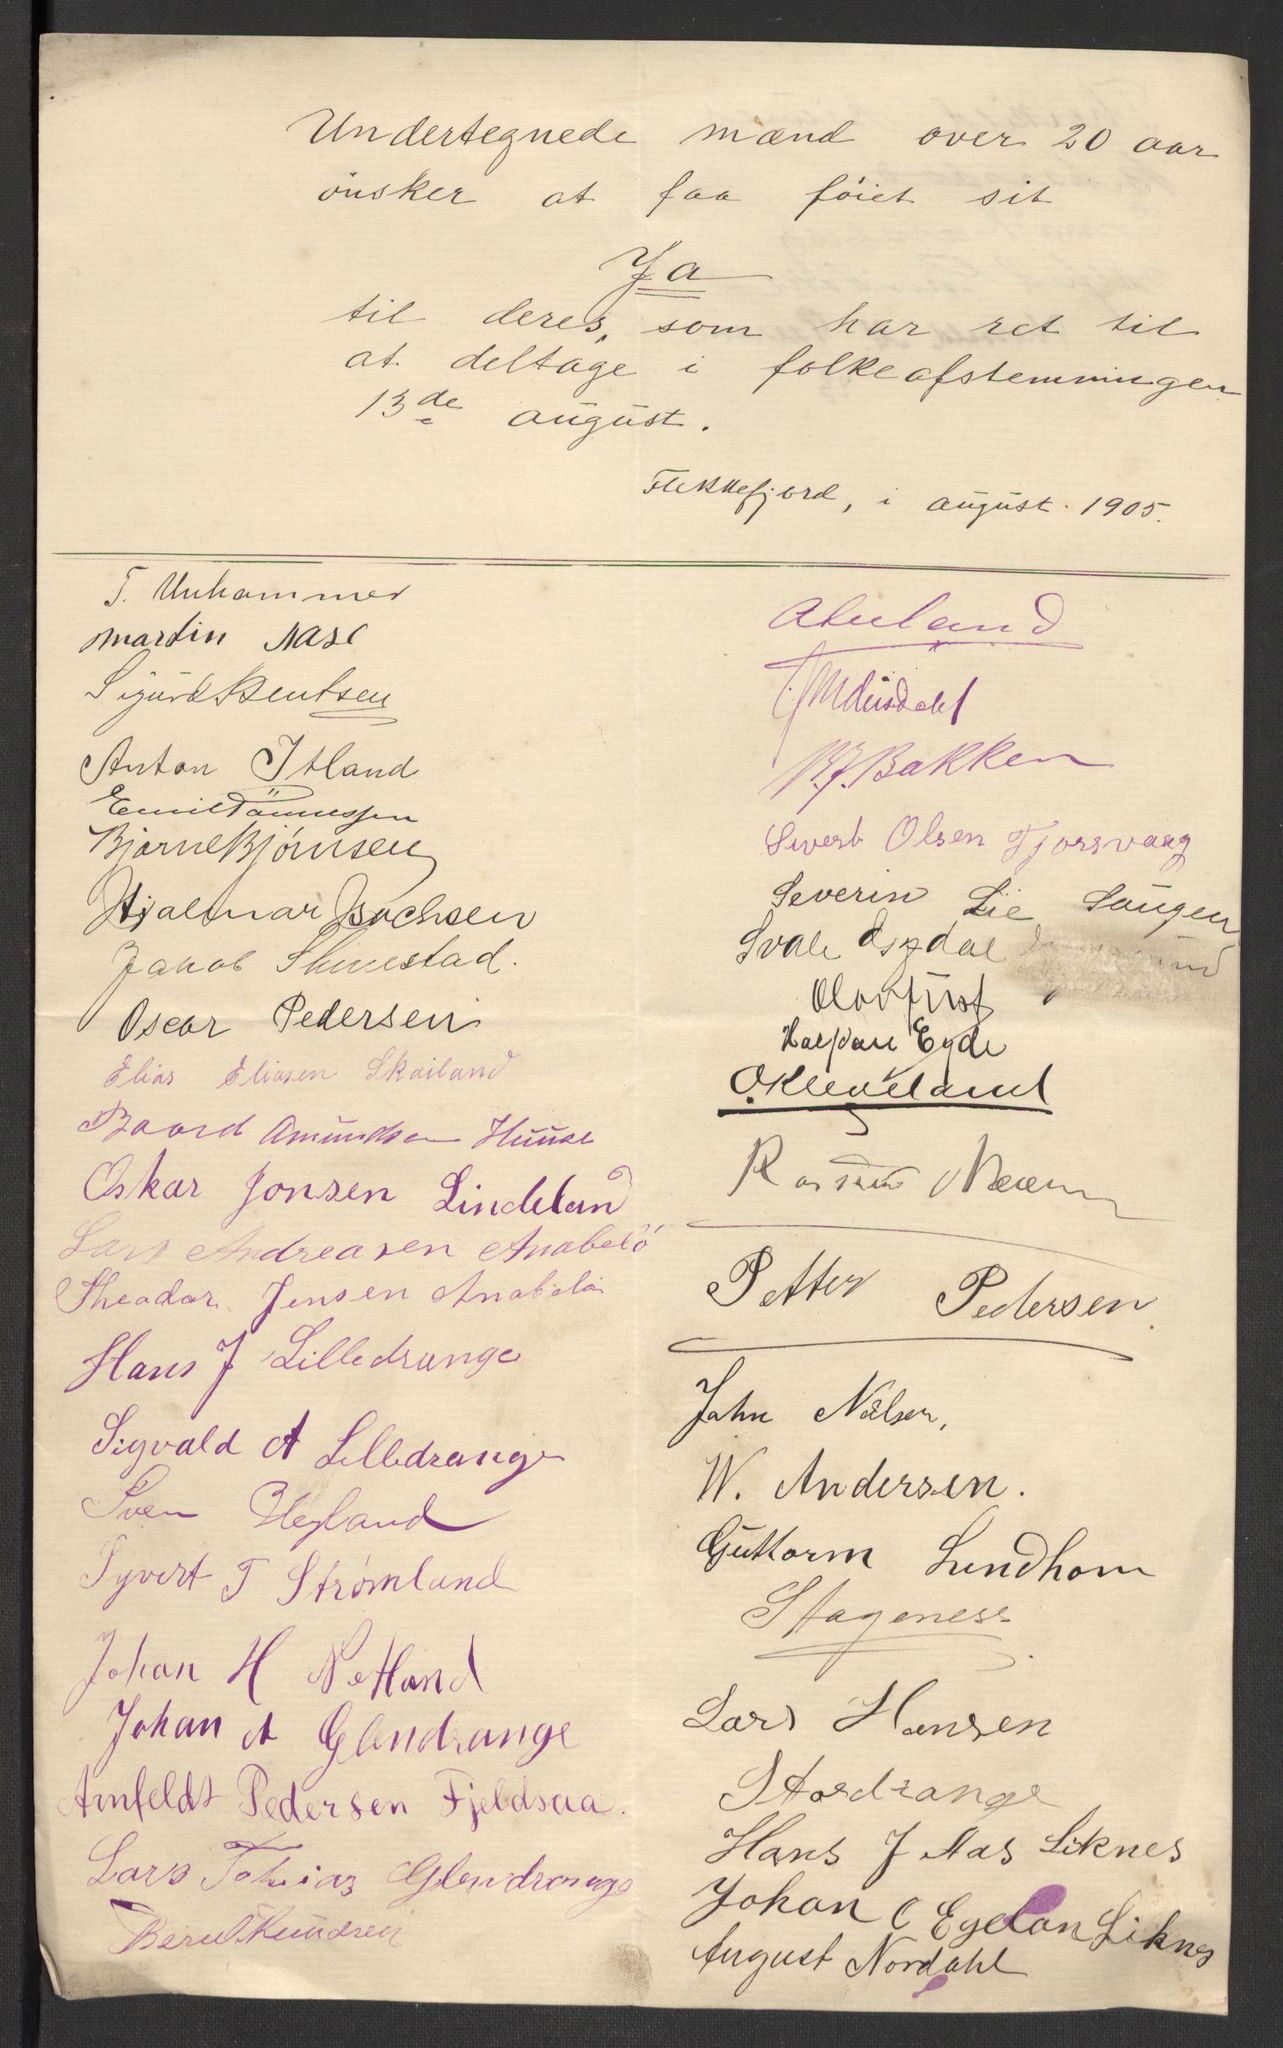 Undertegnede mænd over 20 aar
ønsker at faa føiet sit
Ja
til deres, som har ret til
at deltage i folkeafstemningen
13de august.
Flekkefjord, i august 1905.
T. Unhammer
Martin Aase
Sigurd Bentsen
Anton Itland
Emil Tønnessen
Bjarne Bjørnsen
Hjalmar Isachsen
Jakob Stunestad.
Oscar Pedersen
Elias Eliasen Skailand
Baard Amundsen Huuse
Oskar Jonsen Lindeland
Lars Andreasen Anabelø
Theodor Jensen Anabelø
Hans J Lilledrange
Sigvald A Lilledrange
Sven Hegland
Syvert T Strømland
Johan H Netland
Johan A Glendrange
Arnfeldt Pedersen Fjeldsaa.
Lars Tobias Glendrange
Knudsen
Bakken
Sivert Olsen Tjorsvaag
Severin Lie Saugen
Svale
Halfdan Eyde
O. Kleveland
Petter Pedersen.
John Nilsen,
W. Andersen.
Guttorm Sundhom
S Hageness
Lars Hansen
Stordrange
Hans J Aas Liknes
Johan C Egelan Liknes
August Nordahl